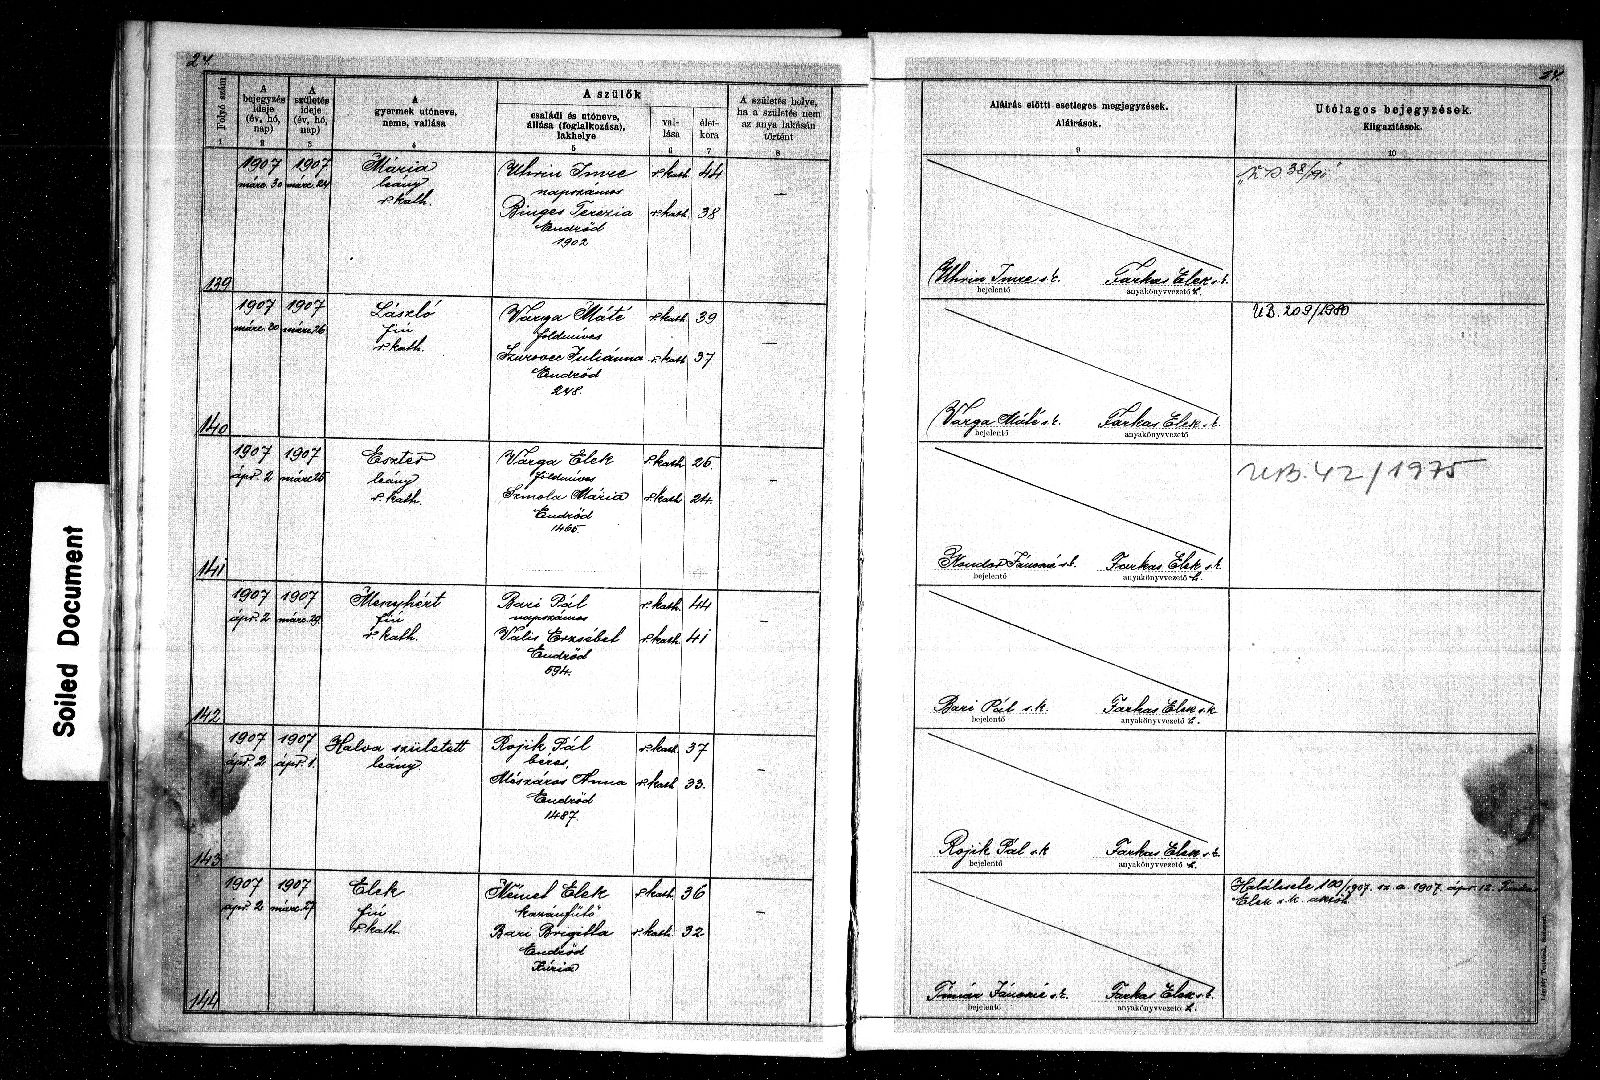 24
24
Folyó szám
A bejegyzés ideje (év, hó, nap)
A születés ideje (év, hó, nap)
A gyermek utóneve, neme, vallása
A szülők
családi és utóneve, állása (foglalkozása), lakhelye
vallása
életkora
A születés helye, ha a születés nem az anya lakásán történt
Aláírás előtti esetleges megjegyzések.
Aláirások.
Utólagos bejegyzések
Kiigazitások.
1 2 3 4 5 6 7 8 9 10
139
1907 márc. 30
1907 márc. 24
Mária
leány
r. kath.
Uhrin Imre r. kath. 44
napszámos
Binges Terezia r. kath. 38
Endrőd
1902
—
Uhrin Imre s. k.
bejelentő
Farkas Elek s. k.
anyakönyvvezető h.
140
1907 márc. 30
1907 márc. 26
László
fiú
r. kath.
Varga Máté r. kath. 39
földmíves
Szurovec Juliánna r. kath. 37
Endrőd
248.
—
Varga Máté s. k.
bejelentő
Farkas Elek s. k.
anyakönyvvezető
UB. 209/1980
141
1907 ápr. 2
1907 márc. 25
Eszter
leány
r. kath.
Varga Elek r. kath. 25
földmíves
Szmola Mária r. kath. 24.
Endrőd
1465.
—
Hondor Jánosné s. k.
bejelentő
Farkas Elek s. k.
anyakönyvvezető h.
UB. 42/1975
142
1907 ápr. 2
1907 márc. 29.
Menyhért
fiú
r. kath.
Bari Pál r. kath. 44
napszámos
Valis Erzsébet r. kath. 41
Endrőd
594.
—
Bari Pál s. k.
bejelentő
Farkas Elek s. k.
anyakönyvvezető h.
143
1907 ápr. 2
1907 ápr. 1.
Halva született
leány
Rojik Pál r. kath. 37
béres,
Mészáros Anna r. kath. 33.
Endrőd
1487.
—
Rojik Pál s. k.
bejelentő
Farkas Elek s. k.
anyakönyvvezető h.
144
1907 ápr. 2
1907 márc. 27
Elek
fiú
r. kath.
Német Elek r. kath. 36
kazánfűtő
Bari Brigitta r. kath. 32
Endrőd
—
Timár Jánosné s. k.
bejelentő
Farkas Elek s. k.
anyakönyvvezető h.
Halálesete 100/1907. sz. a. 1907. ápr. 12.
Elek s. k.
Soiled Document